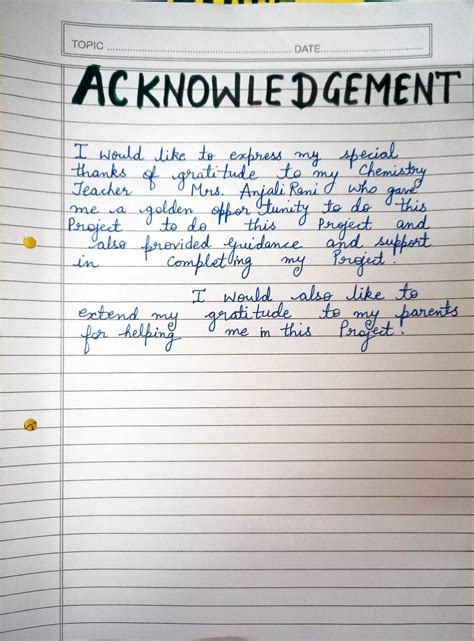 TOPIC ........................ DATE........................
ACKNOWLEDGEMENT
I would like to express my special
thanks of gratitude to my Chemistry
Teacher Mrs. Anjali Rani who gave
me a golden opportunity to do this
Project to do this Project and
also provided Guidance and support
in completing my Project.
I would also like to
extend my gratitude to my parents
for helping me in this Project.